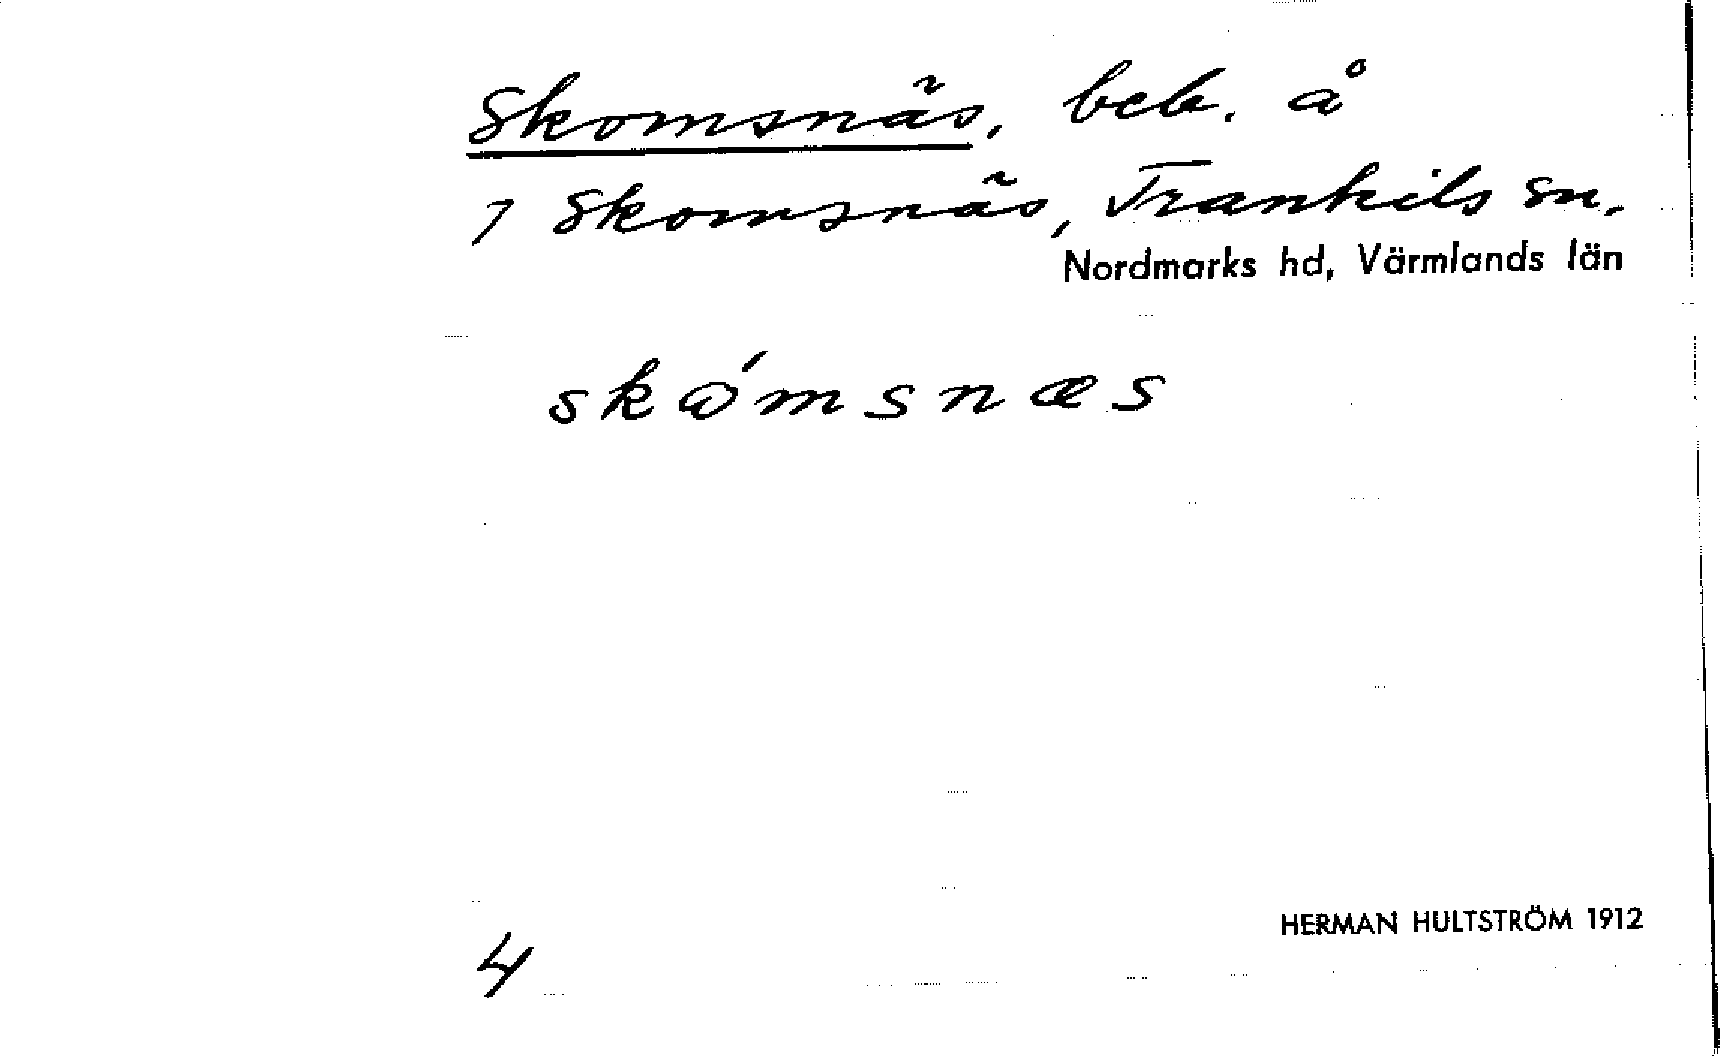 Skomsnäs, beb. å
7 Skomsnäs, Trankils sn,
Nordmarks hd, Värmlands län
skω̇́msnæs
4
HERMAN HULTSTRÖM 1912